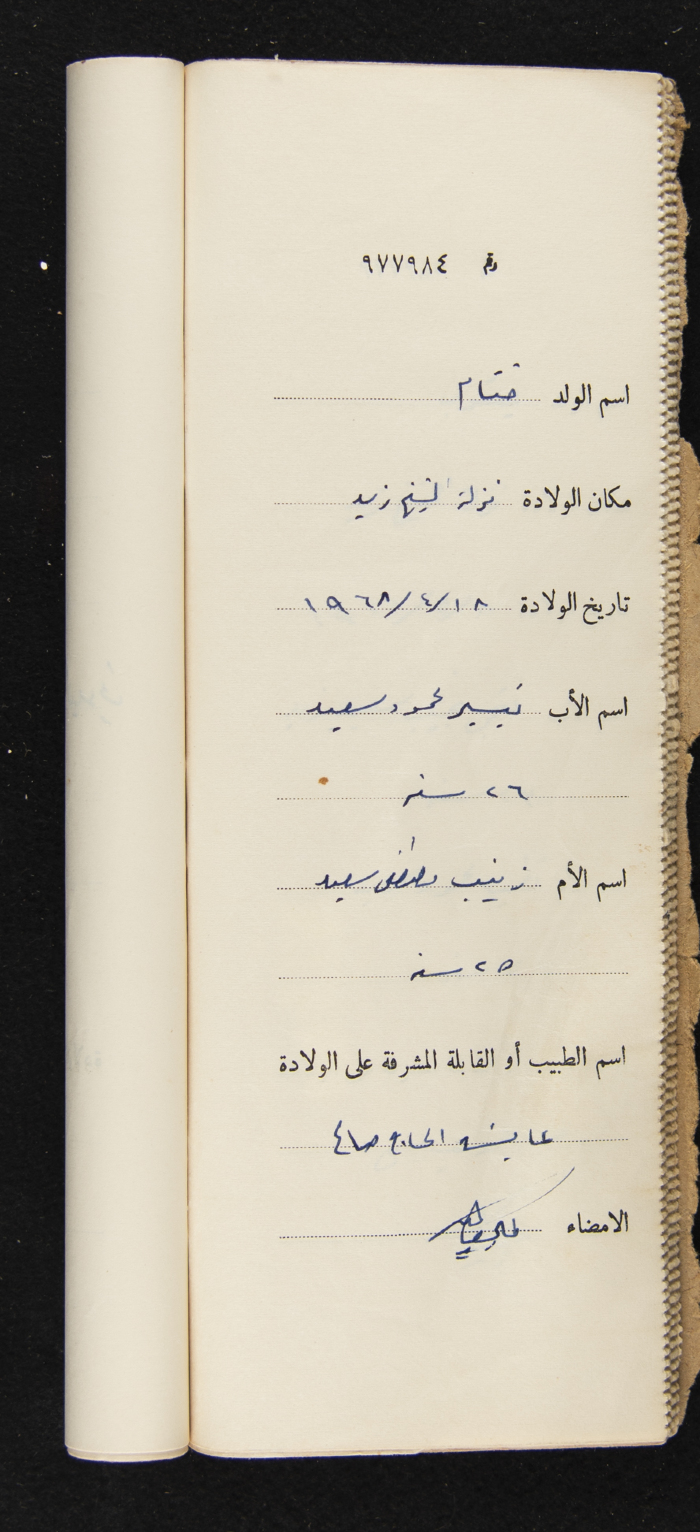 رقم ٩٧٧٩٨٤
اسم الولد ختام
مكان الولادة نزلة الشيخ زيد
تاريخ الولادة ١٩٦٨/٤/١٨
اسم الأب تيسير محمود سعيد
٢٦ سنه
اسم الأم زينب مصطفى سعيد
٢٥ سنه
اسم الطبيب أو القابلة المشرفة على الولادة
عايشه الحاج صالح
الامضاء